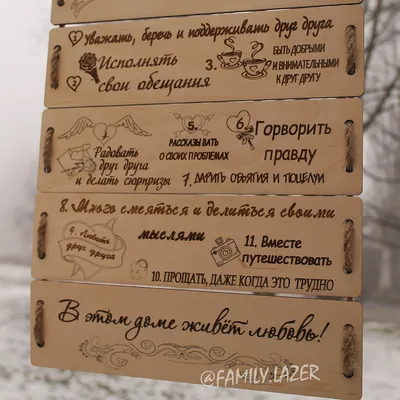 1 Уважать, беречь и поддерживать друг друга
2 Исполнять
свои обещания
3.
БЫТЬ ДОБРЫМИ
И ВНИМАТЕЛЬНЫМИ
К ДРУГ ДРУГУ
4.
Радовать
друг друга
и делать сюрпризы
5.
РАССКАЗЫВАТЬ
О СВОИХ ПРОБЛЕМАХ
6. Горворить
правду
7. ДАРИТЬ ОБЪЯТИЯ И ПОЦЕЛУИ
8. Много смеяться и делиться своими
мыслями
9. Любить
друг друга
10. ПРОЩАТЬ, ДАЖЕ КОГДА ЭТО ТРУДНО
11. Вместе
путешествовать
В этом доме живёт любовь!
@FAMILY.LAZER